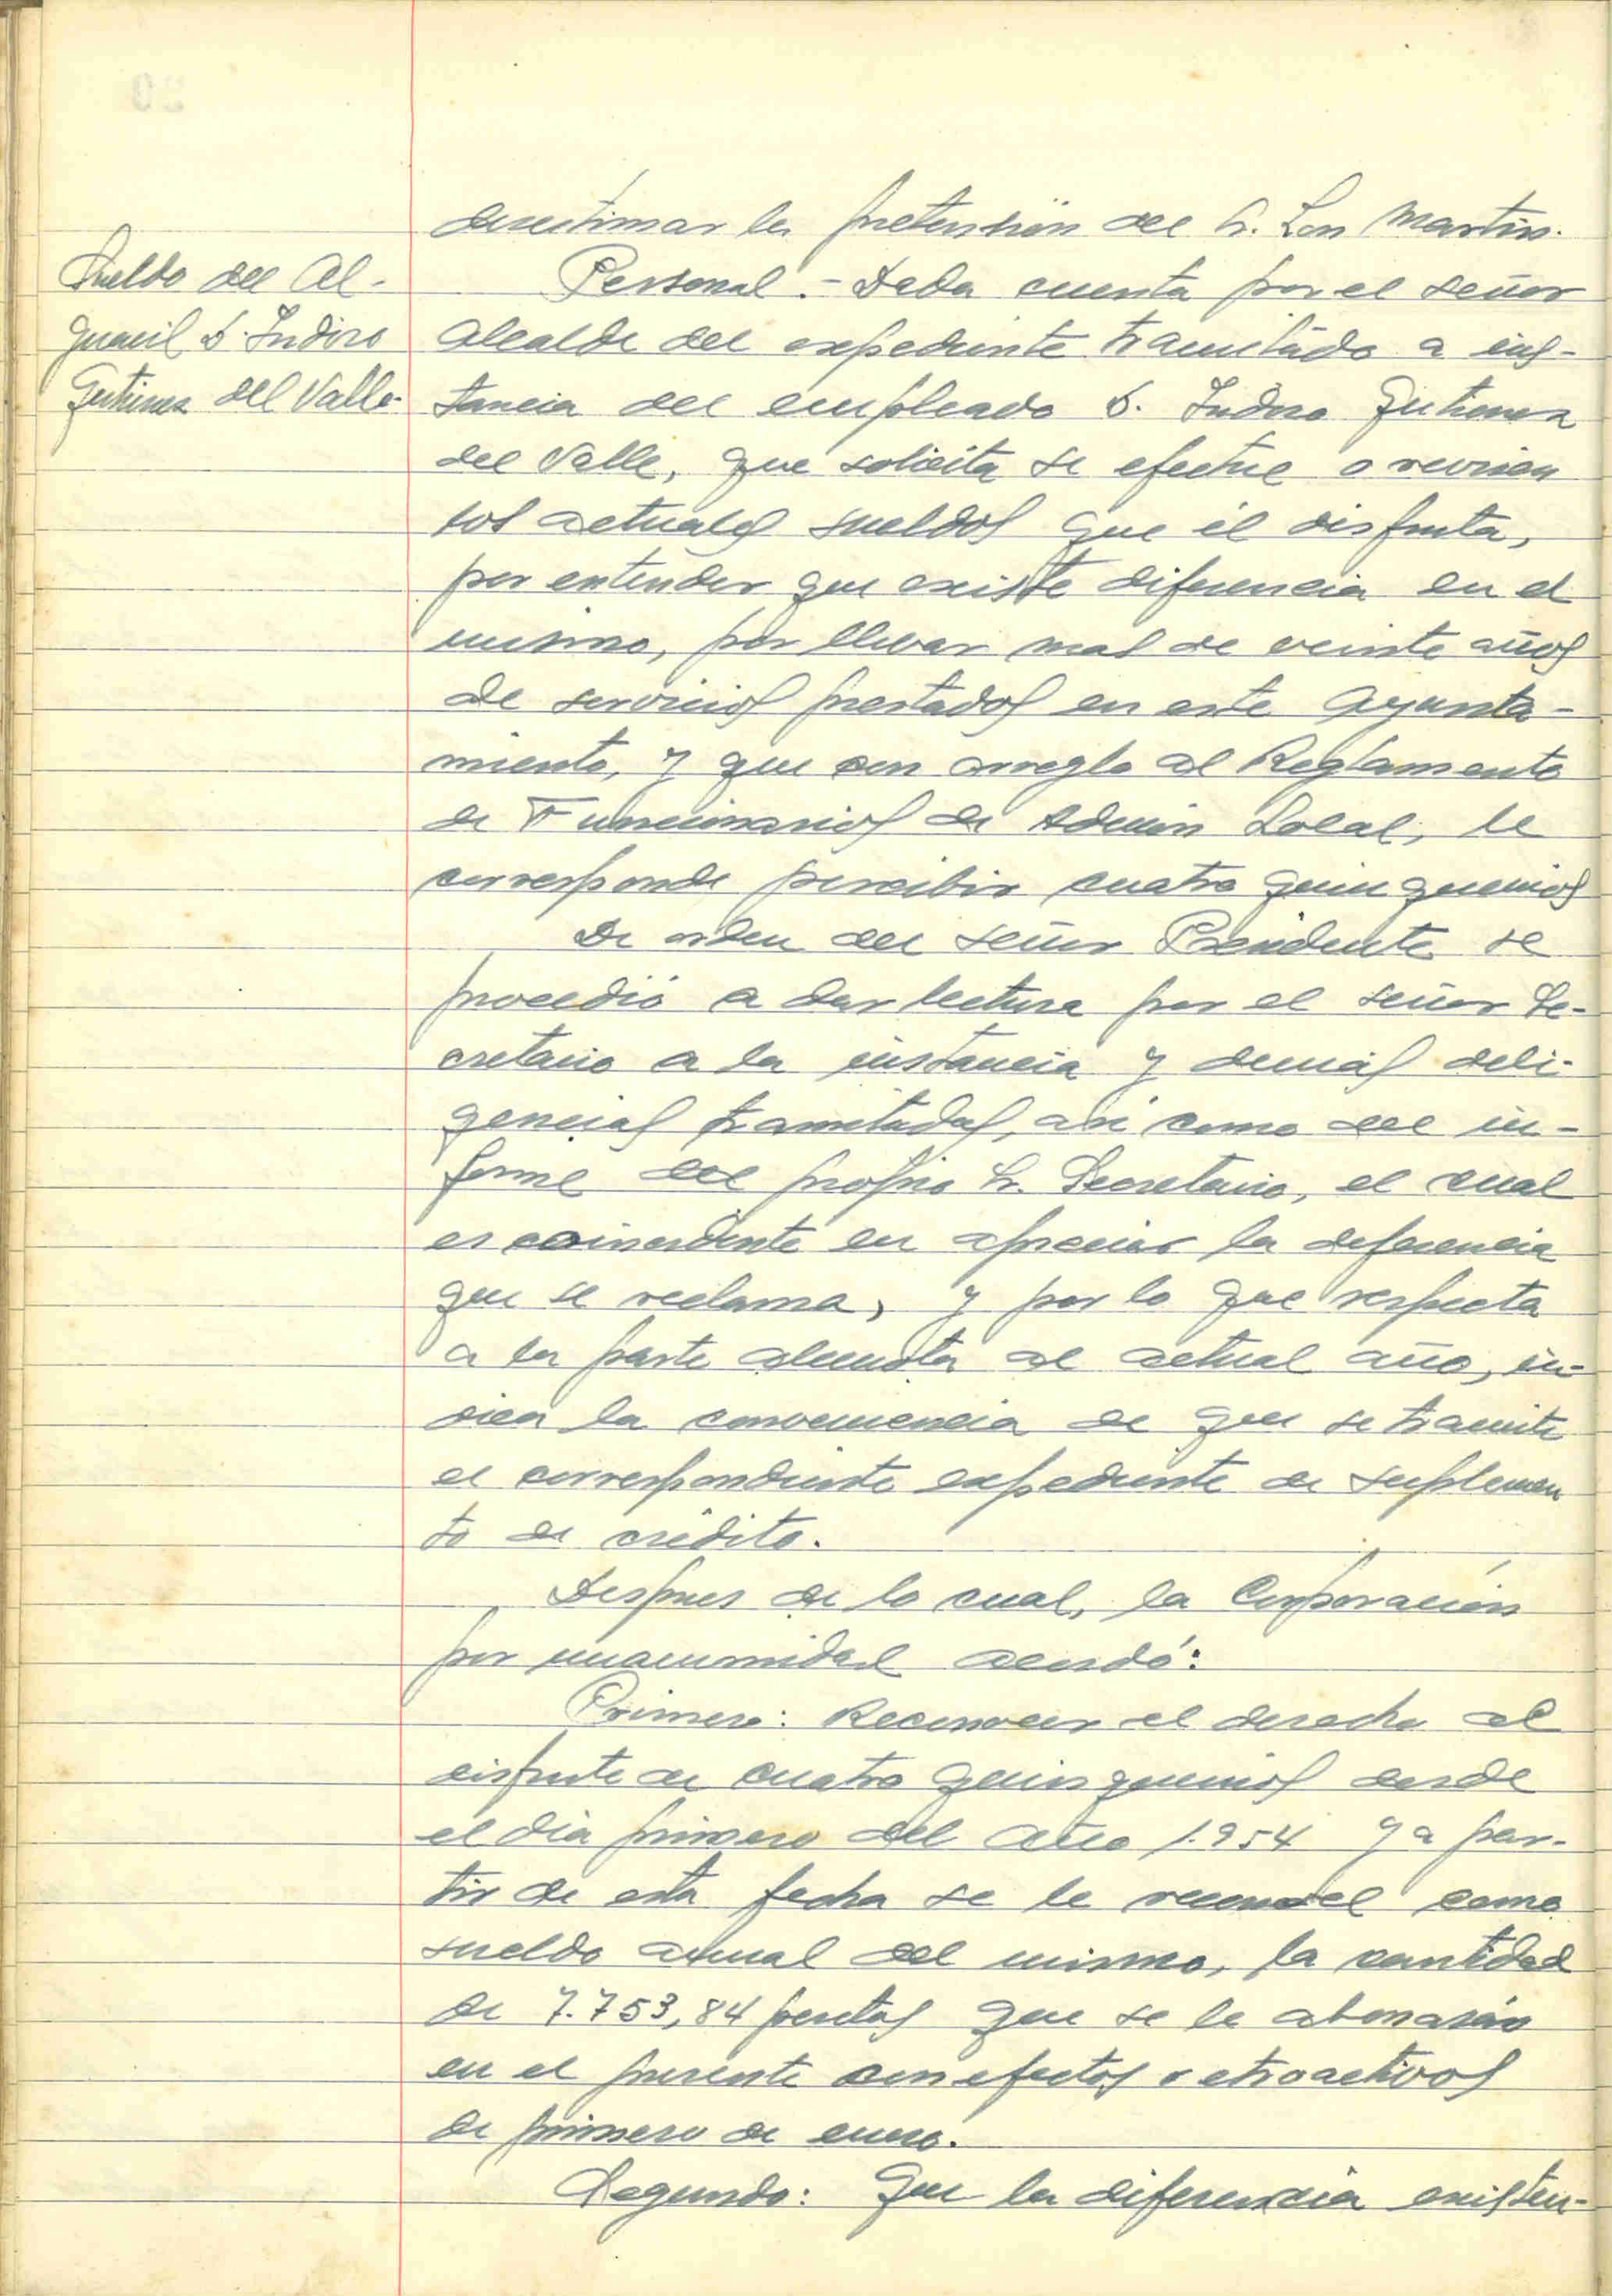 Sueldo del Al-
guacil D. Isidoro
Gutierrez del Valle.
desestimar la pretensión del Sr. Martin.
Personal.- Dada cuenta por el señor
Alcalde del expediente tramitado a ins-
tancia del empleado D. Isidoro Gutierrez
del Valle, que solicita se efectue revision
sos actuales sueldos que él disfruta,
por entender que existe diferencia en el
mismo, por llevar mas de veinte años
de servicios prestados en este Ayunta-
miento, y que con arreglo al Reglamento
de Funcionarios de Admón Local, le
corresponde percibir cuatro quinquenios
De orden del señor Presidente se
procedió a dar lectura por el señor Se-
cretario a la instancia y demás deli-
gencias tramitadas, asi como del in-
forme del propio Sr. Secretario, el cual
es coincidente en apreciar la deferencia
que se reclama, y por lo que respecta
a la parte alicuota al actual año, in-
dica la conveniencia de que se tramite
el correspondiente expediente de suplemen
to de crédito.
Despues de lo cual, la Corporación
por unanimidad acordó:
Primero: Reconocer el derecho al
disfrute de cuatro quinquenios desde
el dia primero del año 1.954 y a par-
tir de esta fecha se le reconoce como
sueldo anual del mismo, la cantidad
de 7.753,84 pesetas que se le abonarán
en el presente con efectos retroactivos
de primero de enero.
Segundo: Que la diferencia existen-